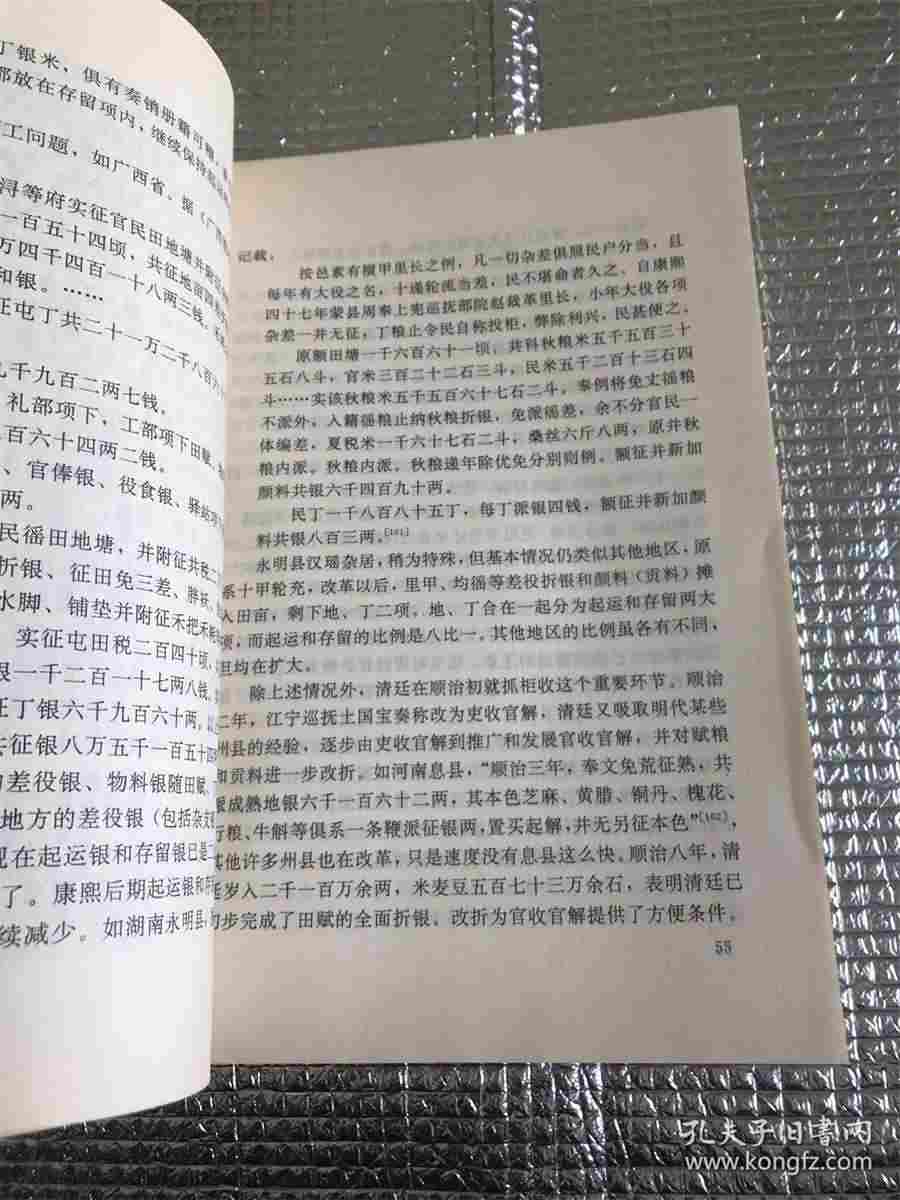 丁银米，俱有奏销册籍可稽，
部放在存留项内，继续保持
工问题，如广西省。据《广
浔等府实征官民田地塘并
一百五十四顷，共征地亩四
万四千四百一十八两三钱。
和银。……
征屯丁共二十一万二千八百六
九千九百二两七钱。
礼部项下、工部项下田赋、
百六十四两二钱。
、官俸银、役食银、驿
两。
民徭田地塘，并附征共税二
折银、征田免三差、胖袄、
水脚、铺垫并附征禾把禾
实征屯田税二百四十顷，
银一千二百一十七两八钱。
征丁银六千九百六十两，
共征银八万五千一百五十
的差役银、物料银随田赋、
地方的差役银（包括杂支
现在起运银和存留银已是二
了。康熙后期起运银和存
续减少。如湖南永明县，
记载：
按邑素有横甲里长之例，凡一切杂差俱照民户分当，且
每年有大役之名，十递轮流当差，民不堪命者久之、自康熙
四十七年蒙县周奉上宪巡抚部院赵裁革里长，小年大役各项
杂差一并无征，丁粮止令民自称投柜，弊除利兴，民甚便之。
原额田塘一千六百六十一顷，共科秋粮米五千五百三十
五石八斗，官米三百二十二石三斗，民米五千二百十三石四
斗……实该秋粮米五千五百六十七石二斗。奉例将免丈徭粮
不派外，入籍徭粮止纳秋粮折银，免派徭差，余不分官民一
体编差，夏税米一千六十七石二斗，桑丝六斤八两，原并秋
粮内派。秋粮内派，秋粮递年除优免分别则例。额征并新加
颜料共银六千四百九十两。
民丁一千八百八十五丁，每丁派银四钱，额征并新加颜
料共银八百三两。[161]
永明县汉瑶杂居，稍为特殊，但基本情况仍类似其他地区，原
系十甲轮充，改革以后，里甲、均徭等差役折银和颜料（贡料）摊
入田亩，剩下地、丁二项。地、丁合在一起分为起运和存留两大
项，而起运和存留的比例是八比一。其他地区的比例虽各有不同，
但均在扩大。
除上述情况外，清廷在顺治初就抓柜收这个重要环节。顺治
二年，江宁巡抚土国宝奏称改为吏收官解，清廷又吸取明代某些
州县的经验，逐步由吏收官解到推广和发展官收官解，并对赋粮
和贡料进一步改折。如河南息县，“顺治三年，奉文免荒征熟，共
派成熟地银六千一百六十二两，其本色芝麻、黄腊、铜丹、槐花、
行粮、牛斛等俱系一条鞭派征银两，置买起解，并无另征本色”[162]，
其他许多州县也在改革，只是速度没有息县这么快。顺治八年，清
廷岁入二千一百万余两，米麦豆五百七十三万余石，表明清廷已
初步完成了田赋的全面折银、改折为官收官解提供了方便条件。
55
孔夫子旧书网
www.kongfz.com